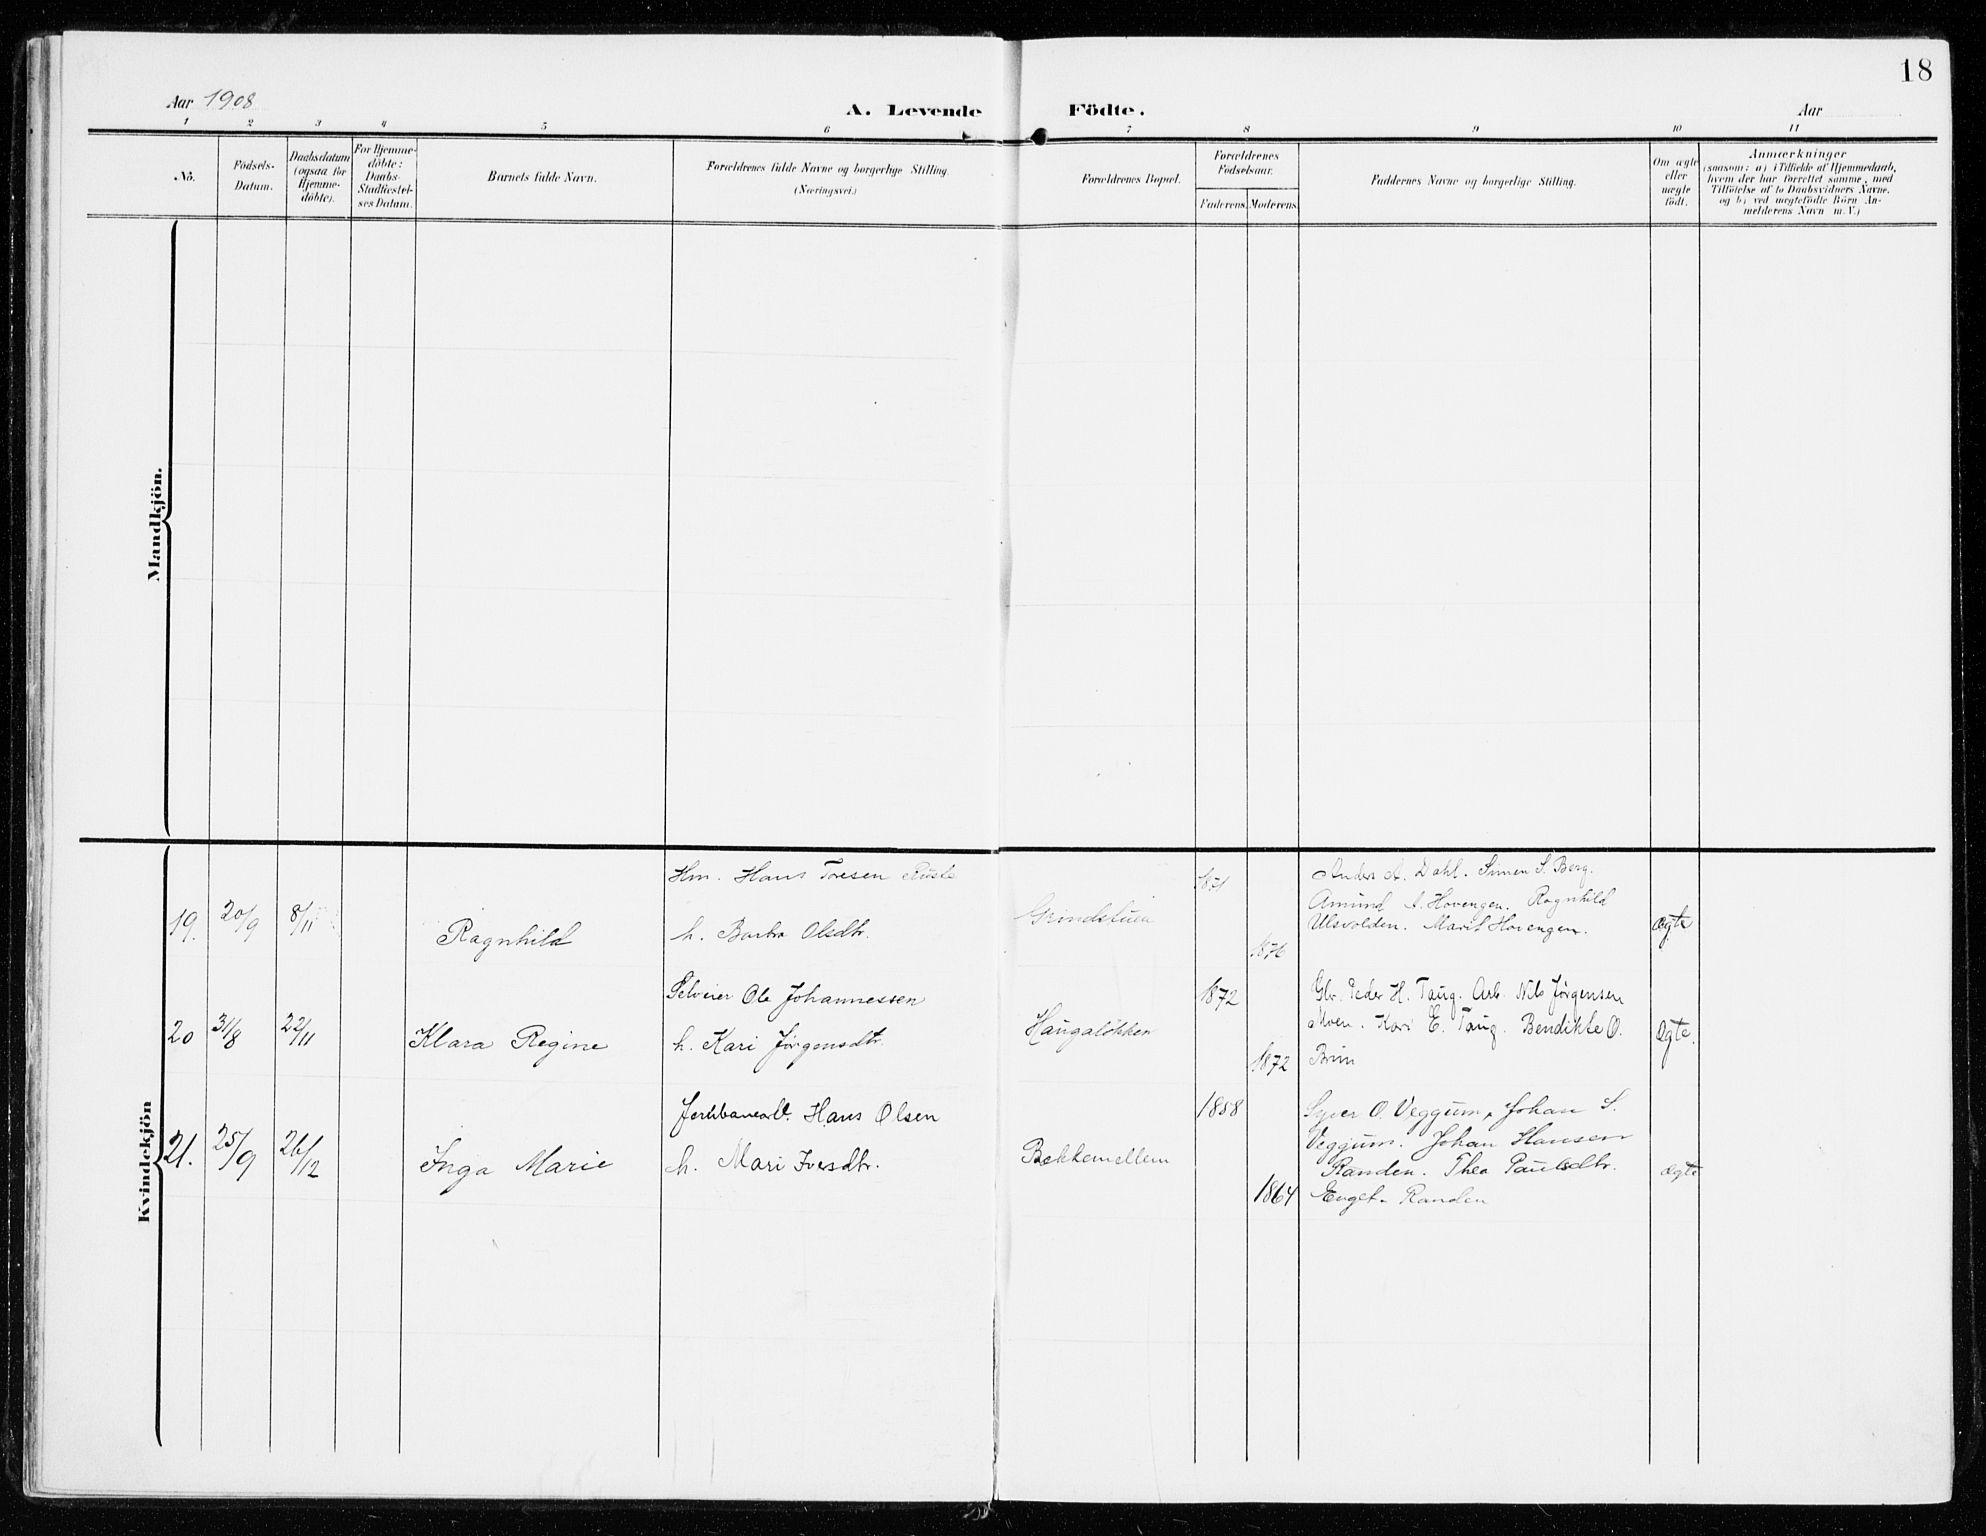 18
Aar 1908
A. Levende Födte.
Aar
1 2 3 4 5 6 7 8 9 10 11
Nö.
Födsels-
Datum.
Daabsdatum
(ogsaa for
Hjemme-
döbte).
For Hjemme-
döbte:
Daabs-
Stadfæstel-
ses Datum.
Barnets fulde Navn.
Forældrenes fulde Navne og borgerlige Stilling.
(Næringsvei.)
Forældrenes Bopæl.
Forældrenes
Födselsaar.
Faderens. Moderens.
Faddernes Navne og borgerlige Stilling.
Om ægte
eller
uægte
födt.
Anmærkninger
(saasom: a) i Tilfælde af Hjemmedaab,
hvem der har forrettet samme, med
Tilföielse af to Daabsvidners Navne,
og b) ved uægtefödte Börn An-
melderens Navn m. V.)
Mandkjön.
Kvindekjön
19. 20/9 8/11
Ragnhild
Hm. Hans Toresen Ruste
h. Barbro Olsdtr.
Grindstuen
1871
1876
Anders A. Dahl. Simen S. Berg.
Amund A. Hovengen. Ragnhild
Ulsvolden. Marit Hovengen.
Ægte
20 31/8 22/11
Klara Regine
Selveier Ole Johannessen
h. Kari Jørgensdtr.
Haugaløkken
1872
1872
Gbr. Peder H. Taug. Arb. Nils Jørgensen
Moen. Kari E. Taug. Bendikte O.
Brun
Ægte.
21. 25/9 26/12
Inga Marie
Jernbanearb. Hans Olsen
h. Mari Iversdtr.
Bekkemellem
1858
1864
Syver O. Veggum, Johan S.
Veggum. Johan Hansen
Randen. Thea Paulsdtr.
Enget. Randen
ægte